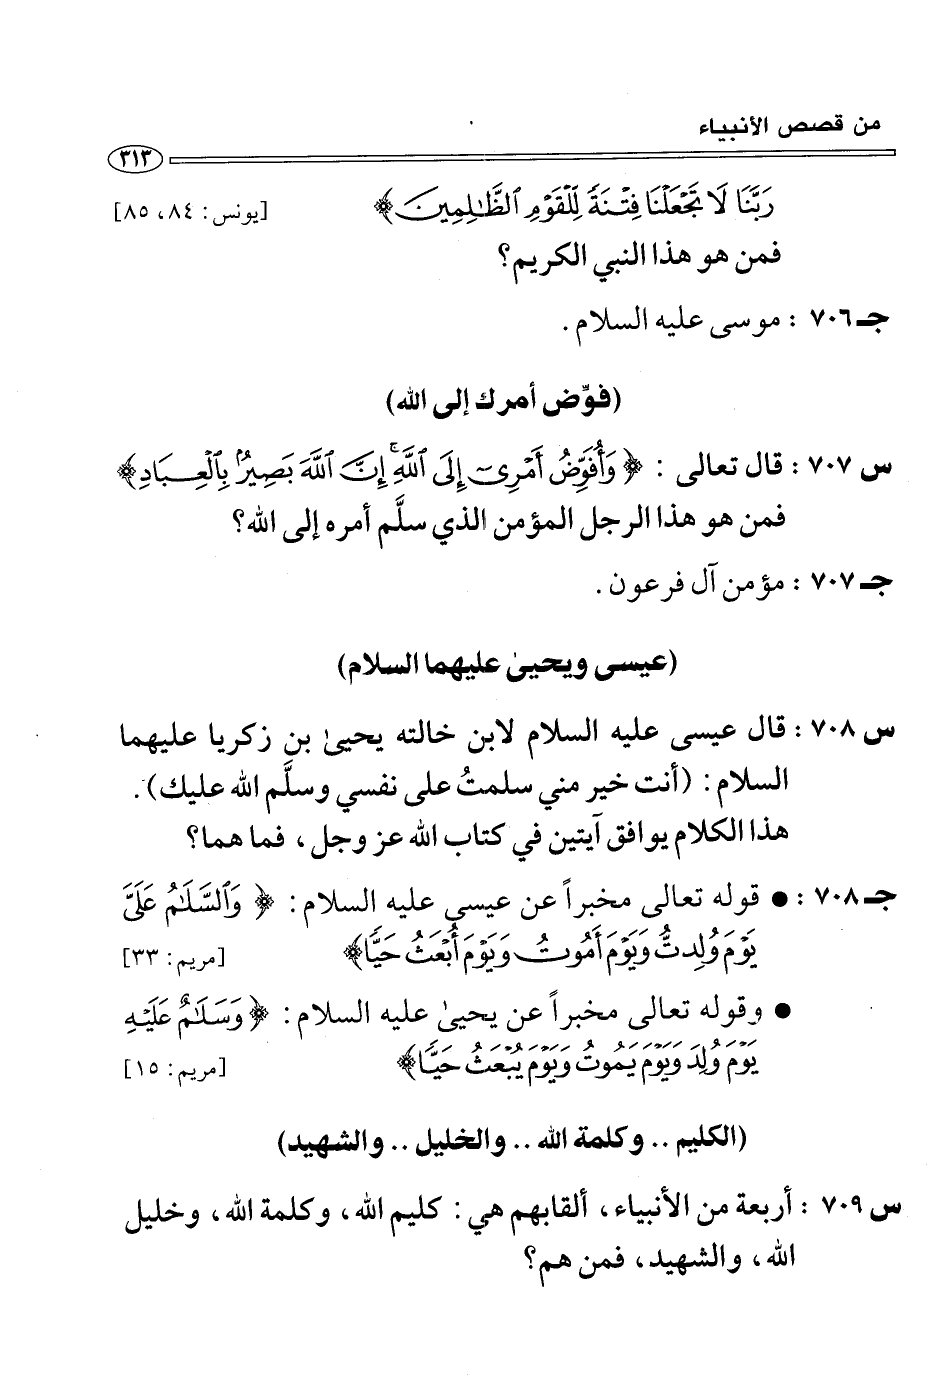 من قصص الأنبياء
٣١٣
رَبَّنَا لَا تَجْعَلْنَا فِتْنَةً لِّلْقَوْمِ ٱلظَّـٰلِمِينَ﴾ [يونس: ٨٤، ٨٥]
فمن هو هذا النبي الكريم؟
جـ ٧٠٦ : موسى عليه السلام.
(فوِّض أمرك إلى الله)
س ٧٠٧ : قال تعالى : ﴿وَأُفَوِّضُ أَمْرِىٓ إِلَى ٱللَّهِۚ إِنَّ ٱللَّهَ بَصِيرٌۢ بِٱلْعِبَادِ﴾
فمن هو هذا الرجل المؤمن الذي سلَّم أمره إلى الله؟
جـ ٧٠٧ : مؤمن آل فرعون.
(عيسى ويحيىٰ عليهما السلام)
س ٧٠٨ : قال عيسى عليه السلام لابن خالته يحيىٰ بن زكريا عليهما
السلام: (أنت خير مني سلمتُ على نفسي وسلَّم الله عليك).
هذا الكلام يوافق آيتين في كتاب الله عز وجل، فما هما؟
جـ ٧٠٨ : ● قوله تعالى مخبراً عن عيسى عليه السلام: ﴿وَٱلسَّلَـٰمُ عَلَىَّ
يَوْمَ وُلِدتُّ وَيَوْمَ أَمُوتُ وَيَوْمَ أُبْعَثُ حَيًّا﴾ [مريم: ٣٣]
● وقوله تعالى مخبراً عن يحيىٰ عليه السلام: ﴿وَسَلَـٰمٌ عَلَيْهِ
يَوْمَ وُلِدَ وَيَوْمَ يَمُوتُ وَيَوْمَ يُبْعَثُ حَيًّا﴾ [مريم: ١٥]
(الكليم .. وكلمة الله .. والخليل .. والشهيد)
س ٧٠٩ : أربعة من الأنبياء، ألقابهم هي: كليم الله، وكلمة الله، وخليل
الله، والشهيد، فمن هم؟